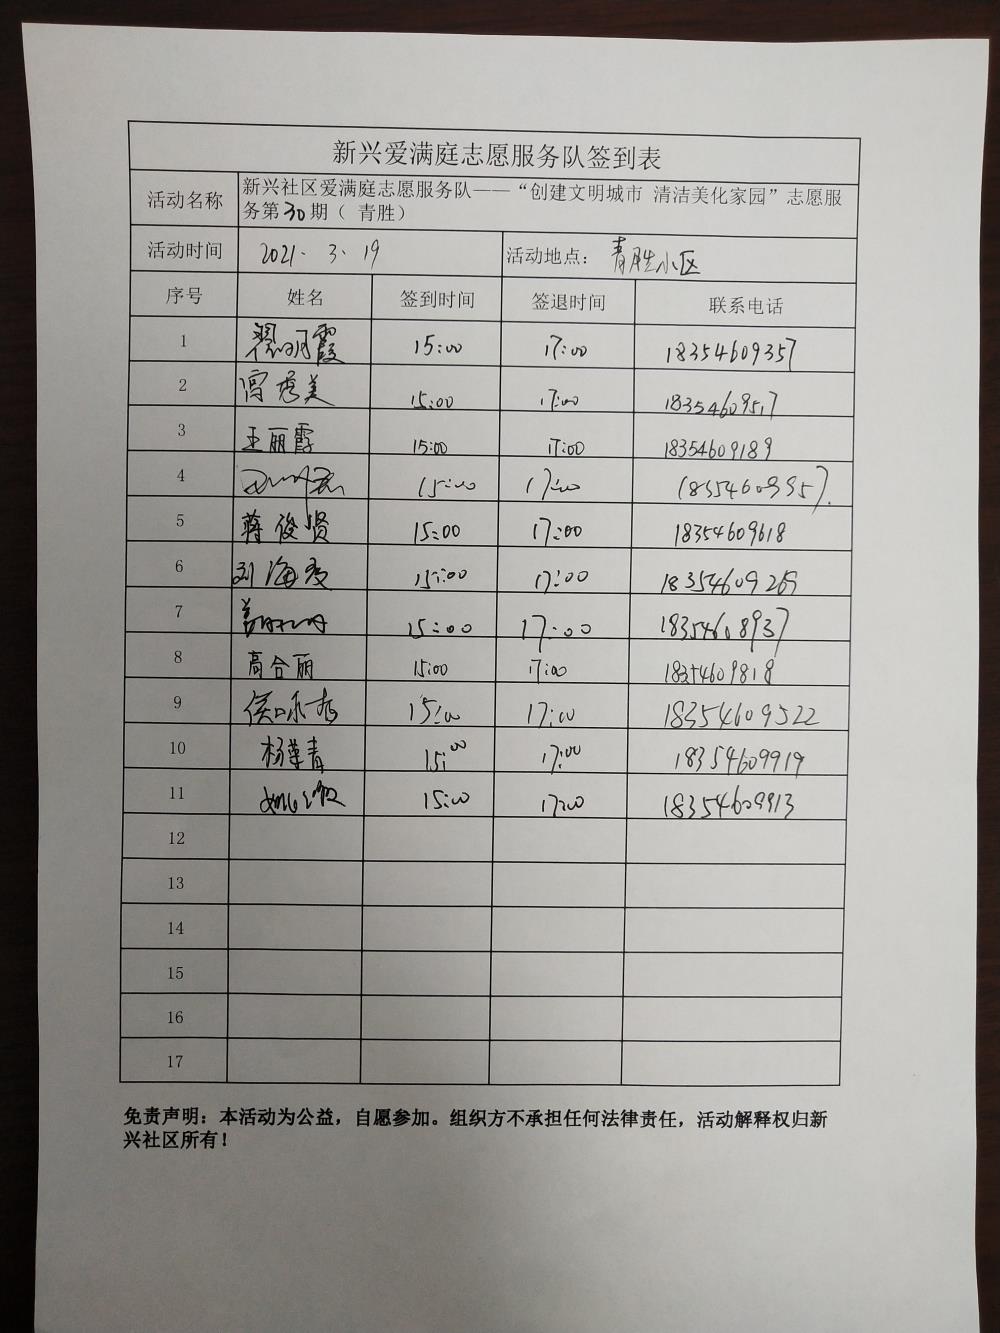 新兴爱满庭志愿服务队签到表
活动名称 新兴社区爱满庭志愿服务队——“创建文明城市 清洁美化家园”志愿服
务第30期（ 青胜）
活动时间 2021. 3. 19 活动地点： 青胜小区
序号 姓名 签到时间 签退时间 联系电话
1 翟明霞 15:00 17:00 18354609357
2 宫秀美 15:00 17:00 18354609517
3 王丽霞 15:00 17:00 18354609189
4 15:00 17:00 18354609957
5 蒋俊贤 15:00 17:00 18354609618
6 刘海霞 15:00 17:00
7 15:00 17:00 18354608937
8 高合丽 15:00 17:00 18354609818
9 侯咏梅 15:00 17:00 18354609522
10 杨萃青 15:00 17:00 18354609919
11 15:00 17:00 18354609913
12
13
14
15
16
17
免责声明：本活动为公益，自愿参加。组织方不承担任何法律责任，活动解释权归新
兴社区所有！